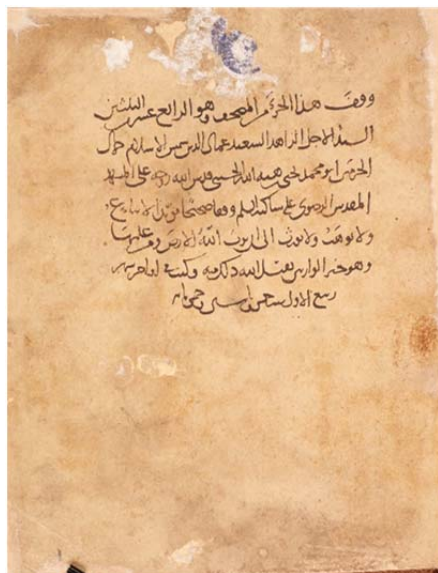 وقف هذا الجزء من المصحف وهو الرابع عشر من الثلثين
السيد الاجل الزاهد السعيد عماد الدين شمس الاسلام جمال
الحرمين ابو محمد يحيى بن هبه الله الحسيني قدس الله روحه على المشهد
المقدس الرضوي على ساكنه السلم وقفا صحيحا مؤبدا لا يباع
ولا يوهب ولا يورث الى ان يرث الله الارض ومن عليها
وهو خير الوارثين تقبل الله ذلك منه وكتب في اواخر شهر
ربيع الاول سنه